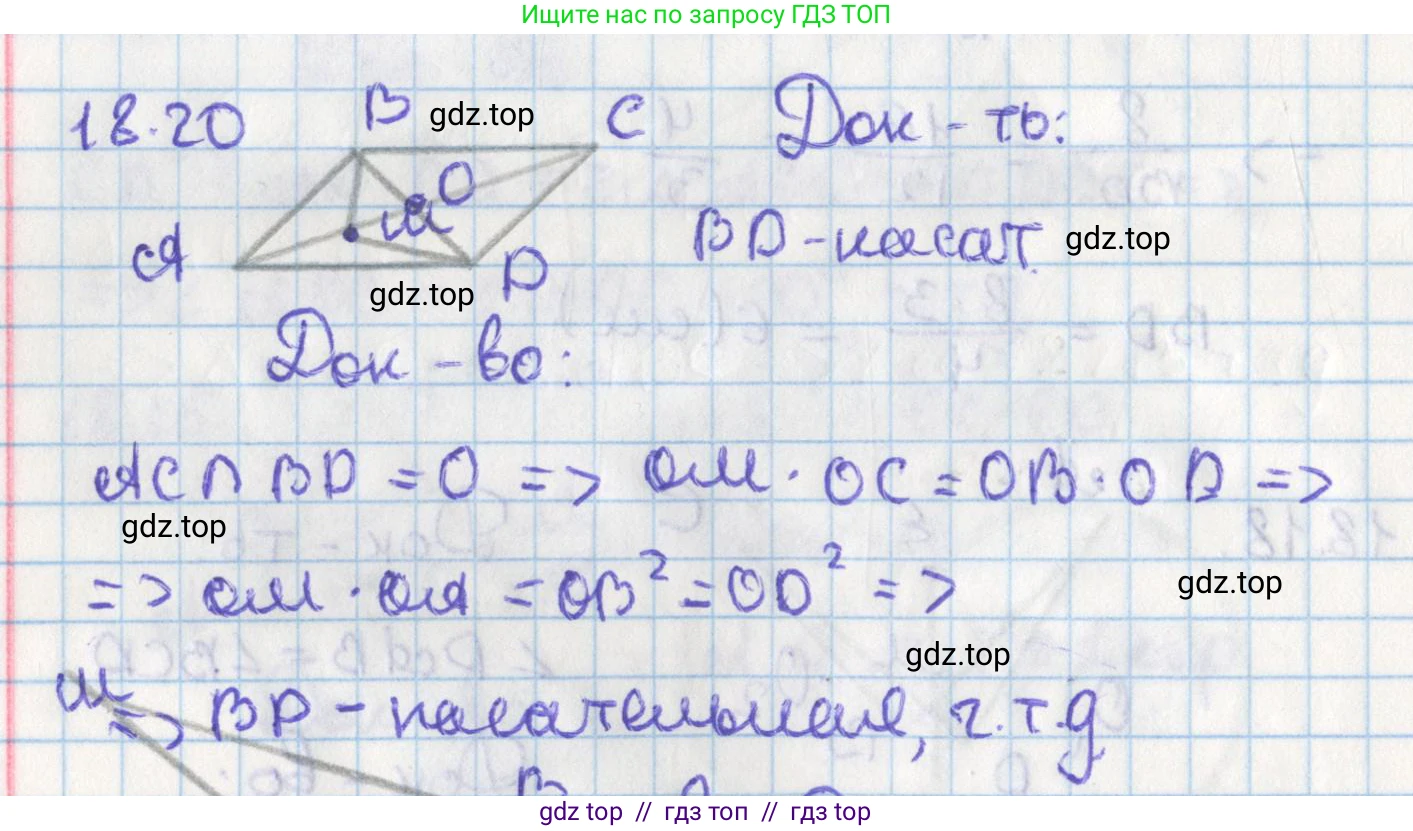 Ищите нас по запросу ГДЗ ТОП
18.20 B gdz.top C Док-ть:
O
M
A BD-касат. gdz.top
gdz.top D
Док-во:
AC∩BD=O => OM·OC=OB·OD =>
gdz.top
=> OM·OA=OB²=OD² => gdz.top
gdz.top
M
=> BD-касательная, ч.т.д
B
gdz top // гдз топ // гдз top